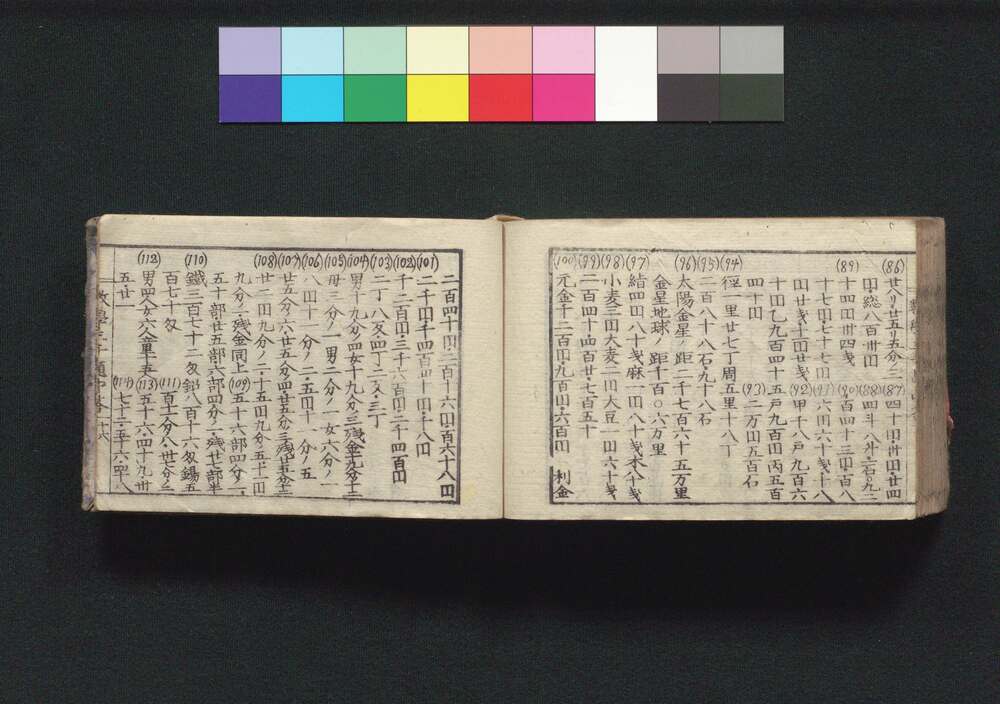 (86) 廿八リ・廿五・五分ノ二 (87) 四十円・卅円・廿四
円・総八百卅円 (88) 四斗八升・二石〇九二
(89) 十四円卅四戔 (90) 百四十三円・百八
十七円七十七円 (91) 六円六十戔・十八
円廿戔十円廿戔 (92) 甲十八戸九百六
十円乙九百四十五戸九百円丙五百
四十円 (93) 二万円五百石
(94) 徑一里廿七丁周五里十八丁
(95) 二百八十八石・九十八石
(96) 太陽金星ノ距二千七百六十五万里
金星地球ノ距千百〇六万里
(97) 四円八十戔麻一円八十戔木八十戔
(98) 小麦三円大麦二円大豆一円六十戔
(99) 二百四十・四百廿七・百五十
(100) 元金千二百円・九百円・六百円 利金
二百四十円・二百十六円・百六十八円
(101) 二千円・千四百四十円・十八円
(102) 千二百円・三千六百円・二千四百円
(103) 二丁・八叉・四丁二叉・三丁
(104) 男十九分ノ四女十九分ノ三残金十九分ノ十二
(105) 母三分ノ一男二分ノ一女六分ノ一
(106) 八円十一分ノ二・五円十一分ノ五
(107) 廿五分ノ六・廿五分ノ四・廿五分ノ三残廿五分ノ十二
(108) 廿二円九分ノ二・十五円九分ノ五・十二円
九分ノ一残金同上 (109) 五十六部四分ノ一
五十部廿五部・六部四分ノ一残廿七部半
(110) 鐵三百七十二匁鉛八百十六匁錫五
百七十匁 (111) 百十六分ノ八・卅七分ノ二
(112) 男四人女六人童十五 (113) 五十六・四十九・卅
五・廿一 (114) 七十二・三十六・四十八